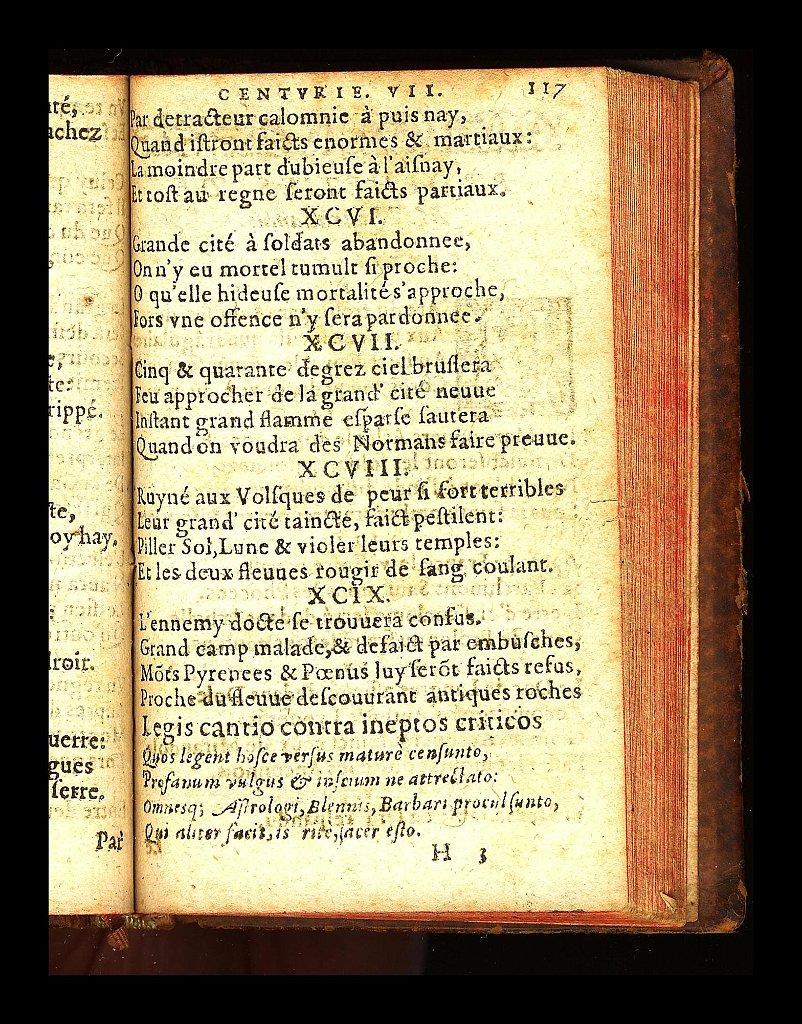 ité,
achez
e,
te:
rippé.
ste,
oy hay.
droit.
uerre:
gues
ſerre.
Par
CENTVRIE. VII. 117
Par detracteur calomnie à puis nay,
Quand iſtront faicts enormes & martiaux:
La moindre part dubieuſe à l'aiſnay,
Et toſt au regne ſeront faicts partiaux.
XCVI.
Grande cité à ſoldats abandonnee,
On n'y eu mortel tumult ſi proche:
O qu'elle hideuſe mortalité s'approche,
Fors vne offence n'y ſera pardonnee.
XCVII.
Cinq & quarante degrez ciel bruſlera
Feu approcher de la grand' cité neuue
Inſtant grand flamme eſparſe ſautera
Quand on voudra des Normans faire preuue.
XCVIII.
Ruyné aux Volſques de peur ſi fort terribles
Leur grand' cité taincte, faict peſtilent:
Piller Sol, Lune & violer leurs temples:
Et les deux fleuues rougir de ſang coulant.
XCIX.
L'ennemy docte ſe trouuera confus.
Grand camp malade, & defaict par embuſches,
Mõts Pyrenees & Pœnus luy ſerõt faicts refus,
Proche du fleuue deſcouurant antiques roches
Legis cantio contra ineptos criticos
Quos legent hoſce verſus maturè cenſunto,
Profanum vulgus & inſcium ne attrectato:
Omneſq; Aſtrologi, Blennis, Barbari procul ſunto,
Qui aliter facit, is rite, ſacer eſto.
H 3